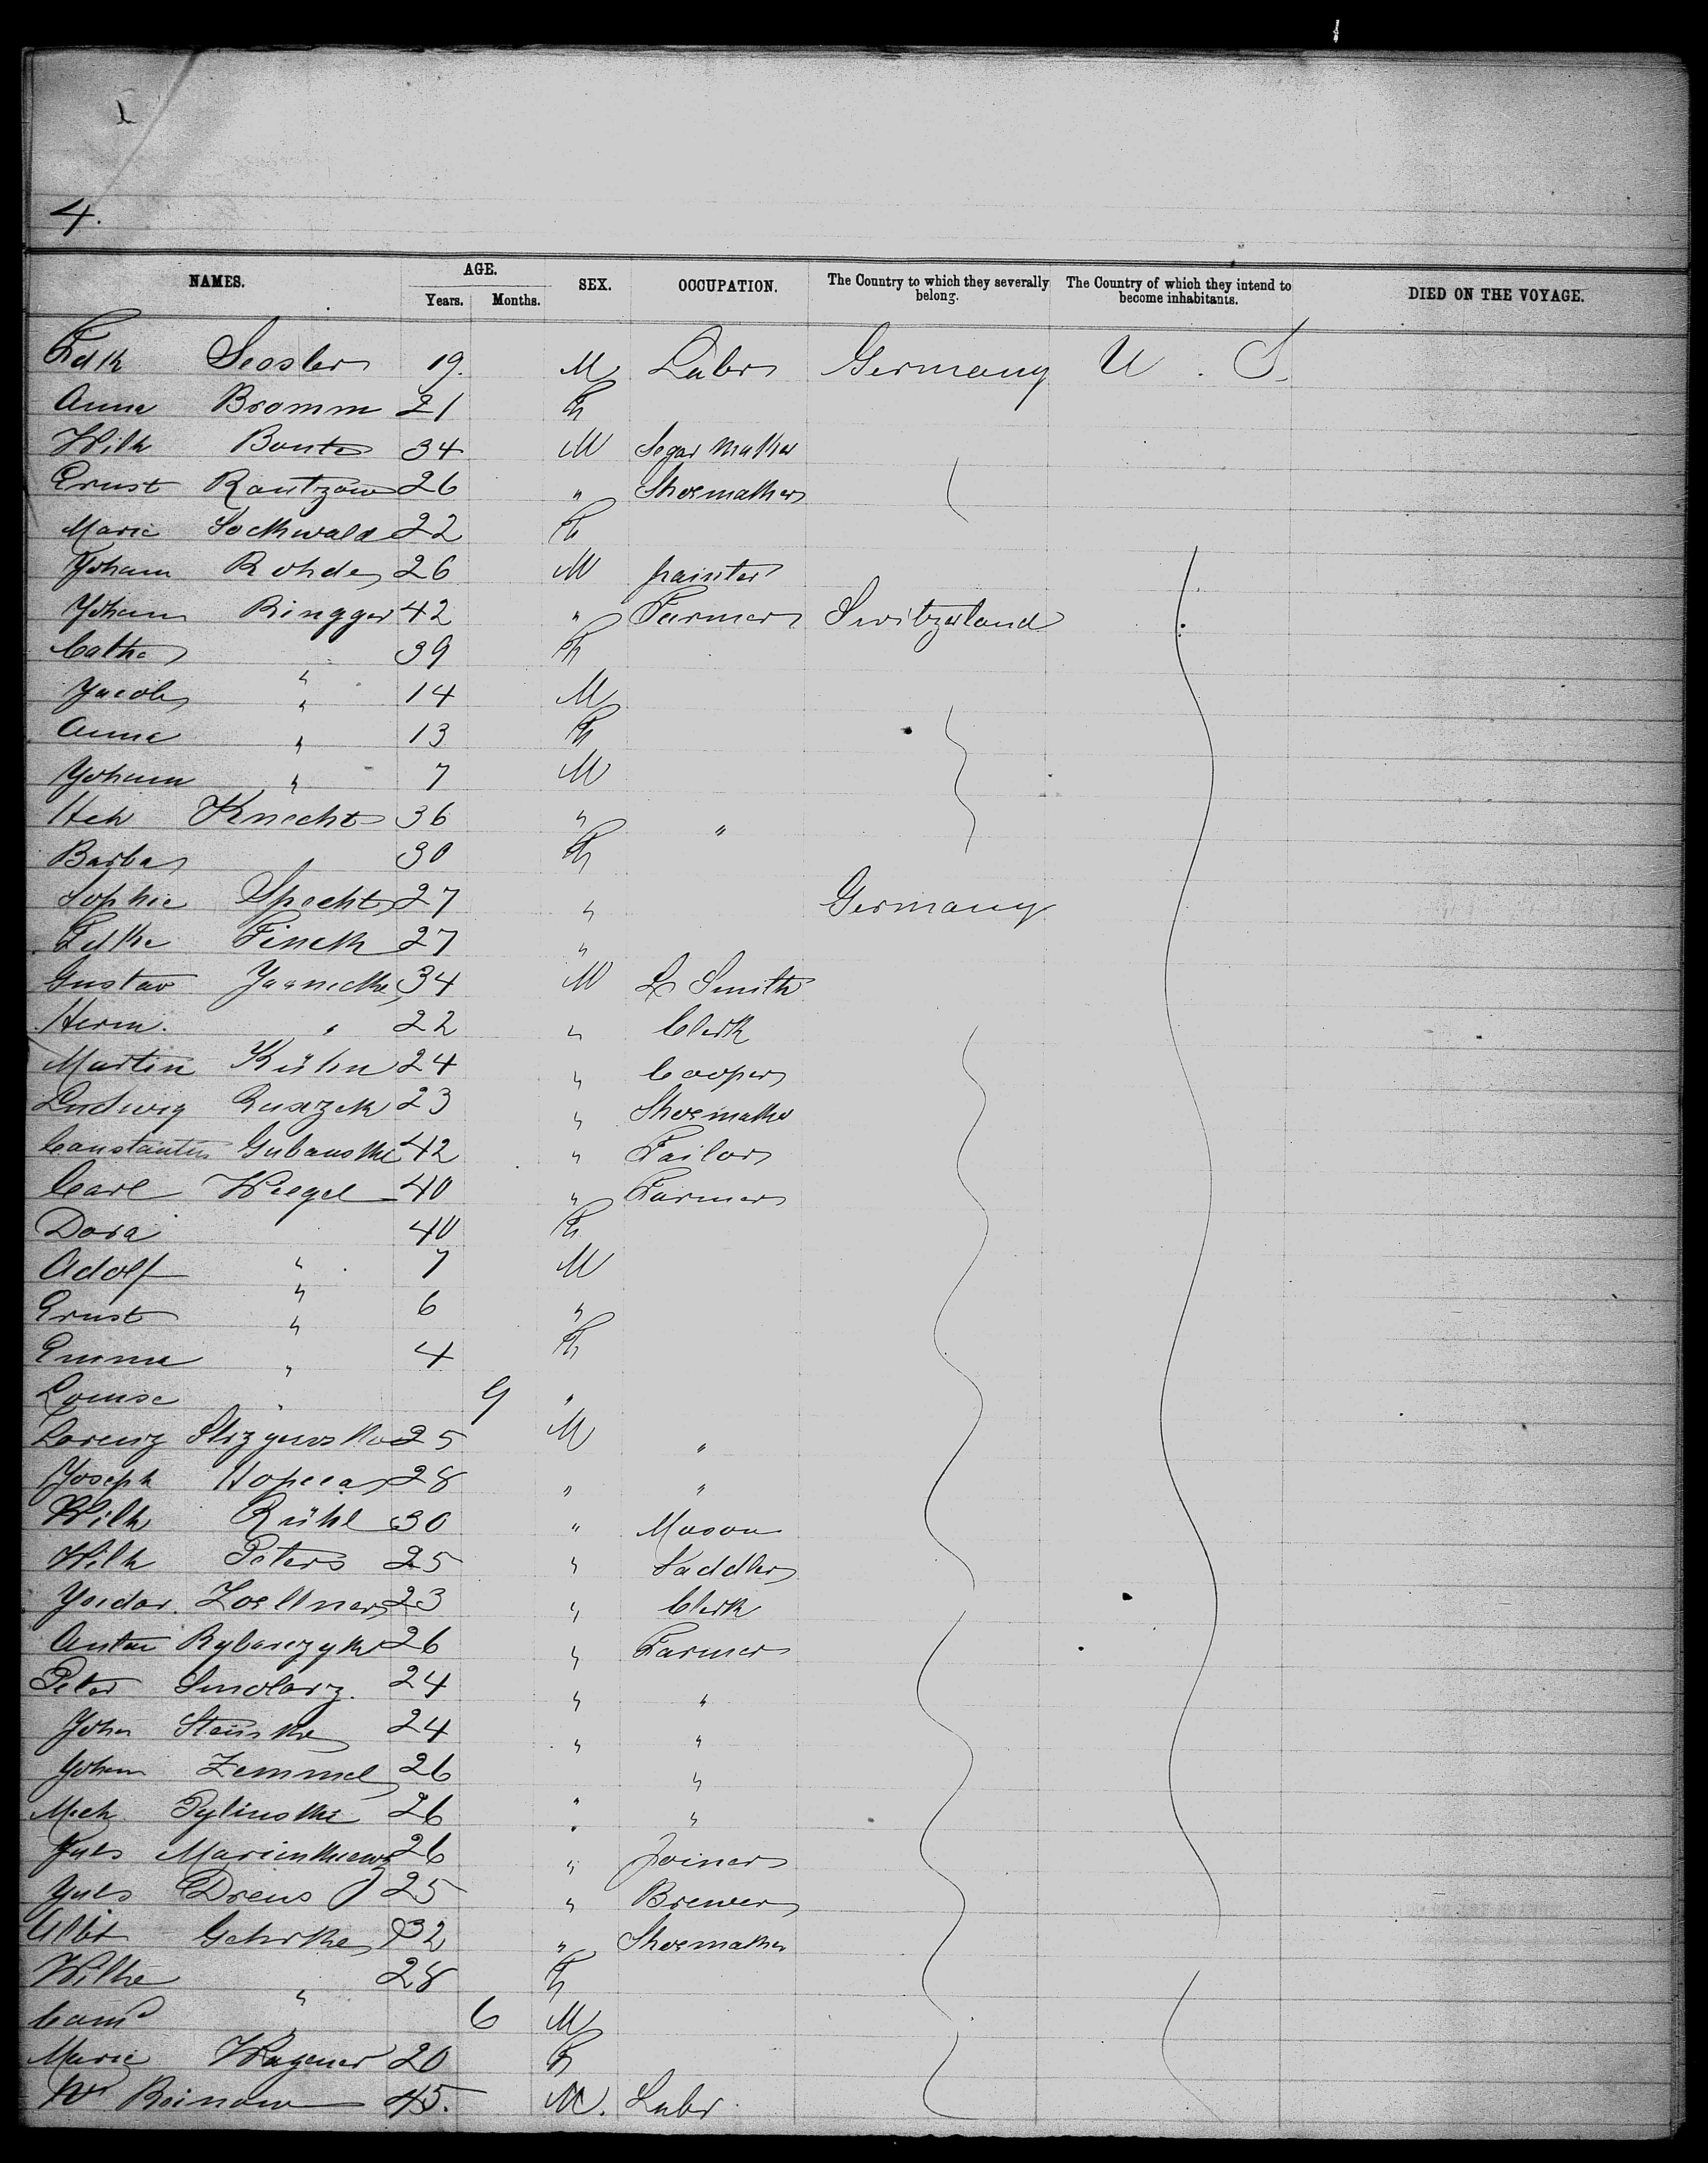 4.
NAMES. AGE. SEX. OCCUPATION. The Country to which they severally belong. The Country of which they intend to become inhabitants. DIED ON THE VOYAGE.
Years. Months.
Fdk Sessler 19. M Labr Germany U. S.
Anna Bromm 21 F
Wilh Bonto 34 M Segar maker
Ernst Rantzow 26 " Shoemaker
Marie Sockwald 22 F
Joham Rohde 26 M painter
Joham Ringger 42 " Farmer Switzerland
Cathe " 39 F
Jacob " 14 M
Anna " 13 F
Joham " 7 M
Heh Knecht 36 " "
Barba 30 F
Sophie Specht 27 " Germany
Fdke Finck 27 "
Gustav Jaenicke 34 M L Smith
Herm. " 22 " Clerk
Martin Kühn 24 " Cooper
Ludwig 23 " Shoemaker
Constantin Gubanski 42 " Tailor
Carl Wiegel 40 " Farmer
Dora 40 F
Adolf " 7 M
Ernst " 6 "
Emma " 4 F
Louise " 9 "
Lorenz 25 M "
Joseph 28 " "
Wilh Rühl 30 " Mason
Wilh Peters 25 " Saddler
Isidor. Zoellner 23 " Clerk
Anton Rybarczyk 26 " Farmer
Peter Smolarz. 24 " "
John 24 " "
Joham Zemmel 26 " "
Mich Pylinski 26 " "
Juls 26 " Joiner
Juls Drews 25 " Brewer
Albt Gehrke 32 " Shoemaker
Wilhe " 28 F
" 6 M
Marie Wagener 20 F
Wm Reinow 45. M. Labr